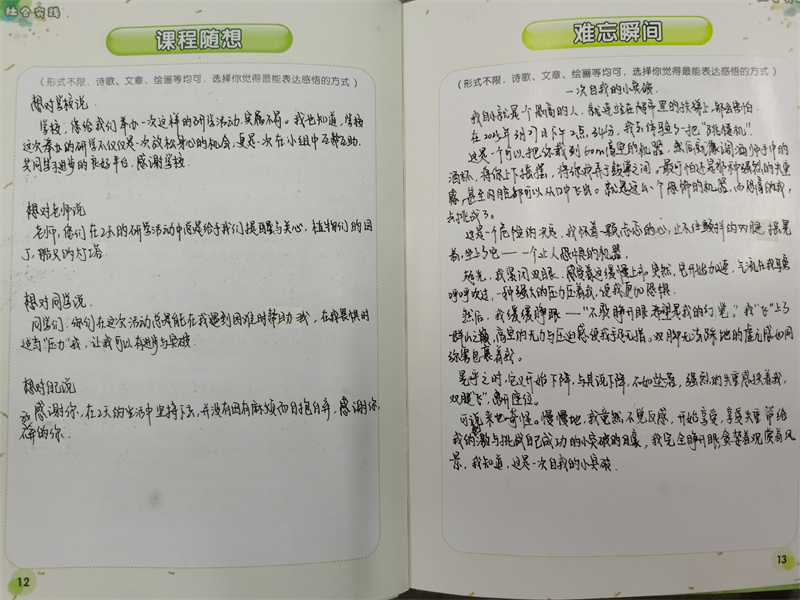 社会实践
课程随想
（形式不限，诗歌、文章、绘画等均可，选择你觉得最能表达感悟的方式）
想对学校说
学校，您给我们举办一次这样的研学活动，实属不易。我也知道，学校
这次举办的研学不仅仅是一次放松身心的机会，更是一次在小组中互帮互助、
共同学进步的良好平台，感谢学校。
想对老师说
老师，您们在2天的研学活动中总是给予我们提醒与关心，植物们的园
丁，那又的灯塔
想对同学说
同学们，你们在这次活动总是能在我遇到困难时帮助我，在我畏惧时
适当“压力”我，让我可以有进步与突破
想对自己说
感谢你，在2天的生活中坚持下去，并没有因有麻烦而自抱自弃，感谢你，
棒的你。
12
难忘瞬间
（形式不限，诗歌、文章、绘画等均可，选择你觉得最能表达感悟的方式）
一次自我的小突破
我自小就是个恐高的人，就连站在超市里的扶梯上，都会害怕。
在2025年3月27日下午2点34分，我去体验了一把“跳楼机”
这是一个可以把你载到60m高空的机器，然后就像调酒师手中的
酒杯，将你上下摇摆，将你戏弄于鼓掌之间。最可怕还是那种强烈的失重
感，甚至内脏都可以从口中飞出。就是这么个恐怖的机器，而恐高的我，
去挑战了。
这是一个危险的决定，我怀着一颗忐忑的心，止不住颤抖的双腿，摇晃
着，坐上了它——一个让人恐惧的机器。
起先，我紧闭双眼，感受着这缓慢上升，突然，它开始加速，气流在我耳旁
呼呼吹过，一种强大的压力压着我，使我更加恐惧。
然后，我缓缓睁眼——“不敢睁开眼，希望是我的幻觉。”我“飞”上了
群山之巅，高空的无力与压迫感使我手足无措。双脚无法踩地的虚无感如同
弥雾包裹着我。
是乎之时，它又开始下降，与其说下降，不如坠落，强烈的失重感扶着我，
双腿“飞”离开座位。
可说来也奇怪。慢慢地，我竟然不觉反感，开始享受，享受失重带给
我的刺激与挑战自己成功的小突破的自豪，我完全睁开眼，贪婪着观赏着风
景，我知道，这是一次自我的小突破。
13